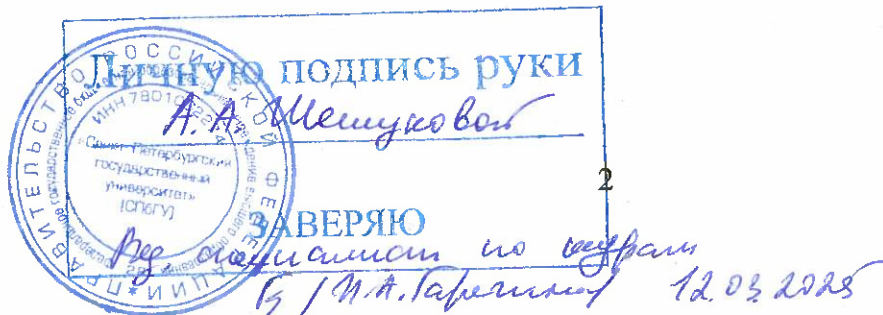 Личную подпись руки
А.А. Шешуковой
2
ЗАВЕРЯЮ
Вед. специалист по кадрам
12.03.2025
ПРАВИТЕЛЬСТВО РОССИЙСКОЙ ФЕДЕРАЦИИ
«Санкт-Петербургский
государственный
университет»
(СПбГУ)